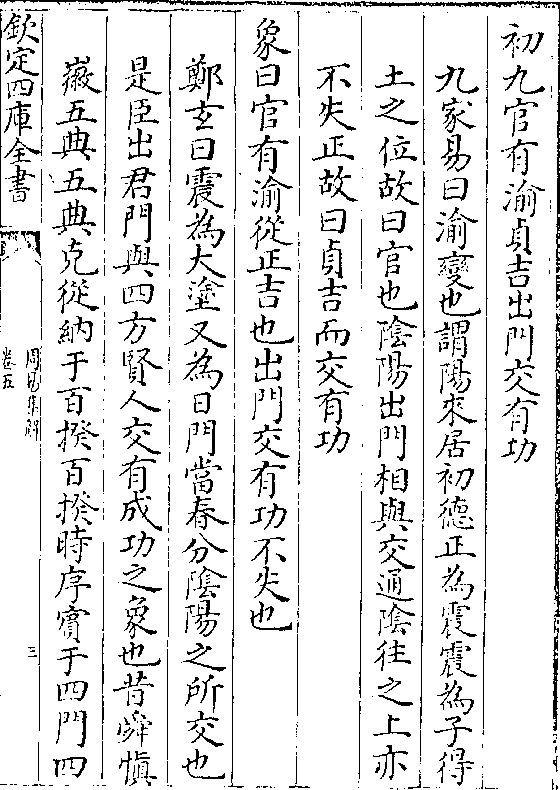 初九官有渝貞吉出門交有功
九家易曰渝變也謂陽來居初德正為震震為子得
土之位故曰官也陰陽出門相與交通陰往之上亦
不失正故曰貞吉而交有功
象曰官有渝從正吉也出門交有功不失也
鄭玄曰震為大塗又為日門當春分陰陽之所交也
是臣出君門與四方賢人交有成功之象也昔舜慎
徽五典五典克從納于百揆百揆時序賓于四門四
欽定四庫全書
周易集解
卷五
三